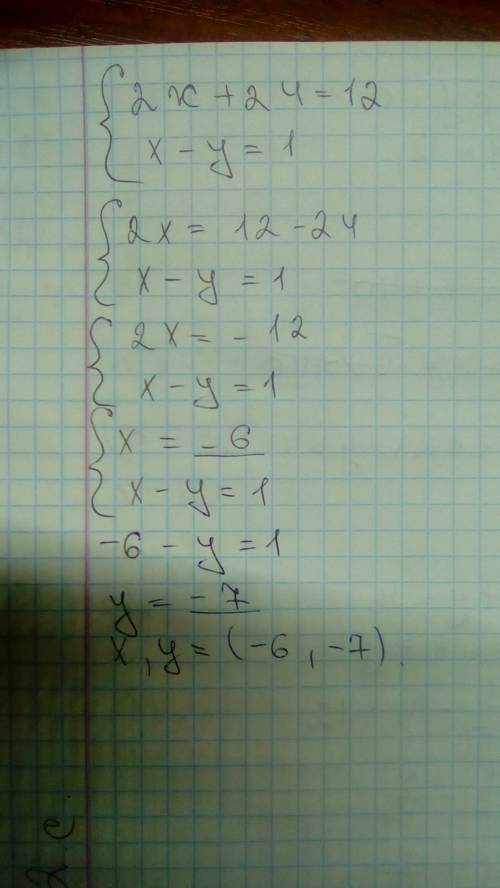 2x + 24 = 12
x - y = 1
2x = 12 - 24
x - y = 1
2x = - 12
x - y = 1
x = - 6
x - y = 1
-6 - y = 1
y = - 7
x, y = (-6, -7).